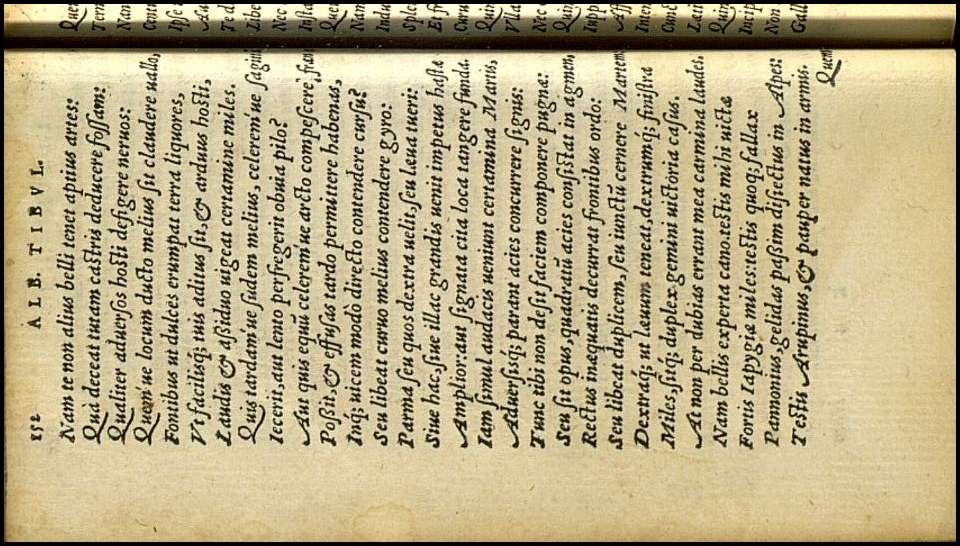 152 ALB. TIBVL.
Nam te non alius belli tenet aptius artes:
Quà deceat tutam castris deducere fossam:
Qualiter aduersos hosti defigere neruos:
Quem'ue locum ducto melius sit claudere uallo,
Fontibus ut dulces erumpat terra liquores,
Vt facilisq; tuis aditus sit, & arduus hosti,
Laudis & aßiduo uigeat certamine miles.
Quis tardam ue sudem melius, celerem'ue sagitt
Iecerit, aut lento perfregerit obuia pilo?
Aut quis equũ celerem'ue arcto compescere fræn
Poßit, & effusas tardo permittere habenas,
Inq; uicem modò directo contendere cursu?
Seu libeat curuo melius contendere gyro:
Parma seu quos dextra uelit, seu læua tueri:
Siue hac, siue illac grandis uenit impetus hastæ
Amplior: aut signata cita loca tangere funda.
Iam simul audacis ueniunt certamina Martis,
Aduersisq; parant acies concurrere signis:
Tunc tibi non desit faciem componere pugnæ:
Seu sit opus, quadratũ acies consistat in agmen,
Rectus inæquatis decurrat frontibus ordo:
Seu libeat duplicem, seu iunctũ cernere Martem
Dextraq; ut læuum teneat, dextrumq; sinistra
Miles, sitq; duplex gemini uictoria casus.
At non per dubias errant mea carmina laudes.
Nam bellis experta cano. testis mihi uictæ
Fortis Iapygiæ miles: testis quoq; fallax
Pannonius, gelidas paßim disiectus in Alpes:
Testis Arupinus, & pauper natus in armis.
Quem
Quem
Nam
Te d
Nec
Nam
Indu
Et fr
Quin
Villa
Nec
Quin
Non
Gall